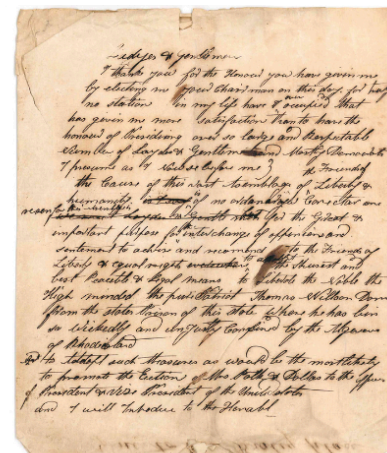 Ledizes & Gentlemen
I thank you for the Honour you have given me
by electing me your Chairman on this day. for
no station in my life have I over occupied that
has given me more satisfaction than to have the
honour of Presiding over so large and Respectable
Number of Ladys & Gentlemen and Mostly Democrats
I presume as I now see before me the friends of
the Cause of this vast Assemblage of Liberty &
humanity is of no ordanary Corrector one
for the Great &
important purpose for interchange of oppinions and
sentement to achive and recomend to the Friends of
Liberty & equal rights to adopt the shurest and
best Peacable & Legal means to Liberate the Noble the
High minded the just Patriot Thomas Willson Dorr
from the states Prison of this state where he has bin
so Wickedly and Unjustly Confined by the Algerines
of Rhode Island
And to addopt such measures as would be the most likely
to promote the Election of Mrs Polk & Dallas to the office
of President & Vice President of the United States
and I will Introduce to the Honorabl